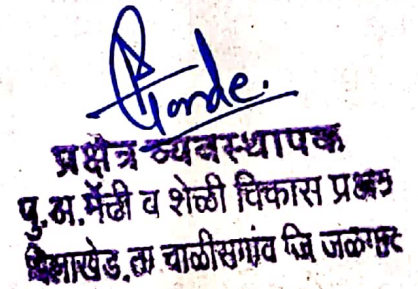 प्रक्षेत्र व्यवस्थापक
पु.अ.मेंढी व शेळी विकास प्रक्षेत्र
ता चाळीसगांव जि जळगाव